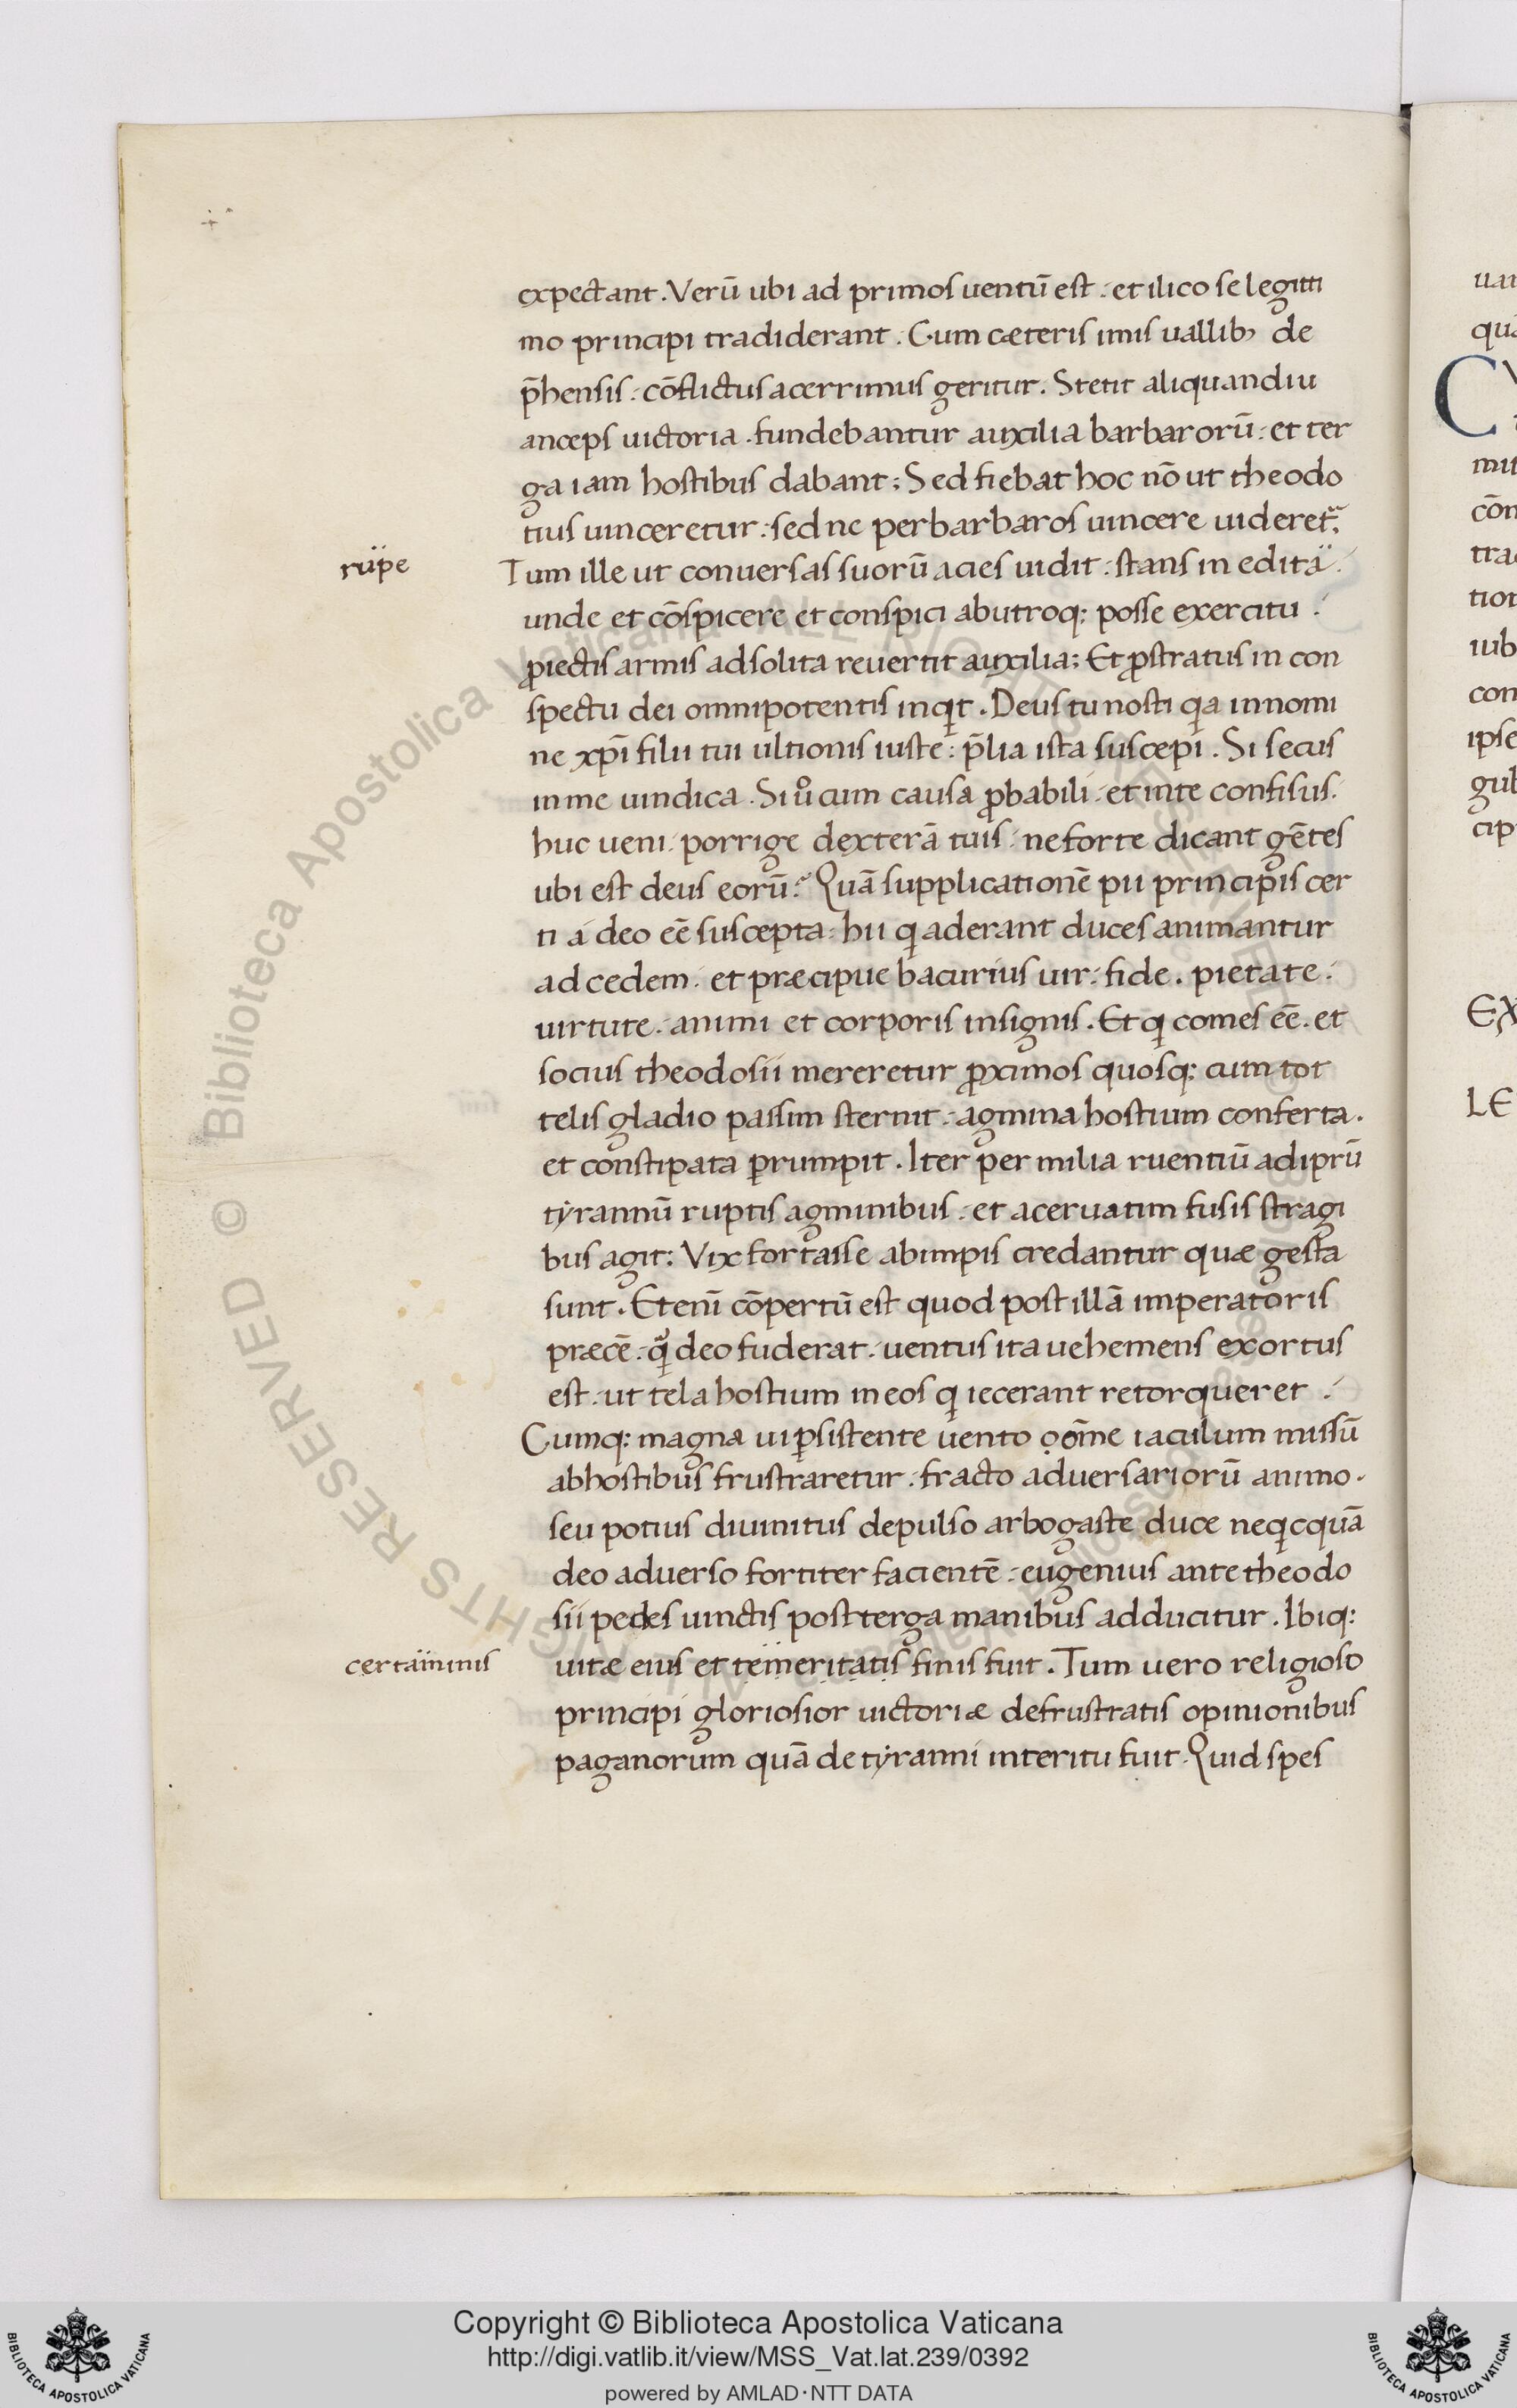 expectant. Verū ubi ad primos uentū est. et ilico se legitti
mo principi tradiderant. Cum cæteris imis uallib; de
p̄hensis. cōflictus acerrimus geritur. Stetit aliquandiu
anceps uictoria. fundebantur auxilia barbarorū. et ter
ga iam hostibus dabant; Sed fiebat hoc nō ut theodo
tius uinceretur. sed ne per barbaros uincere uideret᷑.
rupe
Tum ille ut conuersas suorū acies uidit. stans in edita
unde et cōspicere et conspici ab utroq; posse exercitu.
ꝓiectis armis ad solita reuertit auxilia; Et ꝓstratus in con
spectu dei omnipotentis inqt. Deus tu nosti qa in nomi
ne xp̄i filii tui ultionis iuste. p̄lia ista suscepi. Si secus
in me uindica. Si uº cum causa ꝓbabili. et in te confisus.
huc ueni. porrige dexterā tuis. ne forte dicant gētes
ubi est deus eorū? Quā supplicationē pii principis cer
ti a deo eē suscepta. hii q aderant duces animantur
ad cedem. et præcipue bacurius uir. fide. pietate.
uirtute. animi et corporis insignis. Et q comes eē. et
socius theodosii mereretur ꝓximos quosq; cum tot
telis gladio passim sternit. agmina hostium conferta.
et constipata ꝑrumpit. Iter per milia ruentiū ad iprū
tyrannū ruptis agminibus. et aceruatim fusis stragi
bus agit. Vix fortasse ab impis credantur quæ gesta
sunt. Etenī cōpertū est quod post illā imperatoris
præcē. qͣ deo fuderat. uentus ita uehemens exortus
est. ut tela hostium in eos q iecerant retorqueret.
Cumq; magna ui ꝑsistente uento oōme iaculum missū
ab hostibus frustraretur. fracto aduersariorū animo.
seu potius diuinitus depulso arbogaste duce neqcquā
deo aduerso fortiter facientē. eugenius ante theodo
sii pedes uinctis post terga manibus adducitur. Ibiq;
certaminis
uitæ eius et temeritatis finis fuit. Tum uero religioso
principi gloriosior uictoriæ defrustratis opinionibus
paganorum quā de tyranni interitu fuit. Quid spes
uan
qua
C
mit
cōn
tra
tion
iub
con
ipse
gub
cip
EX
LE
© Biblioteca Apostolica Vaticana ALL RIGHTS RESERVED
Copyright © Biblioteca Apostolica Vaticana
http://digi.vatlib.it/view/MSS_Vat.lat.239/0392
powered by AMLAD·NTT DATA
BIBLIOTECA APOSTOLICA VATICANA
BIBLIOTECA APOSTOLICA VATICANA